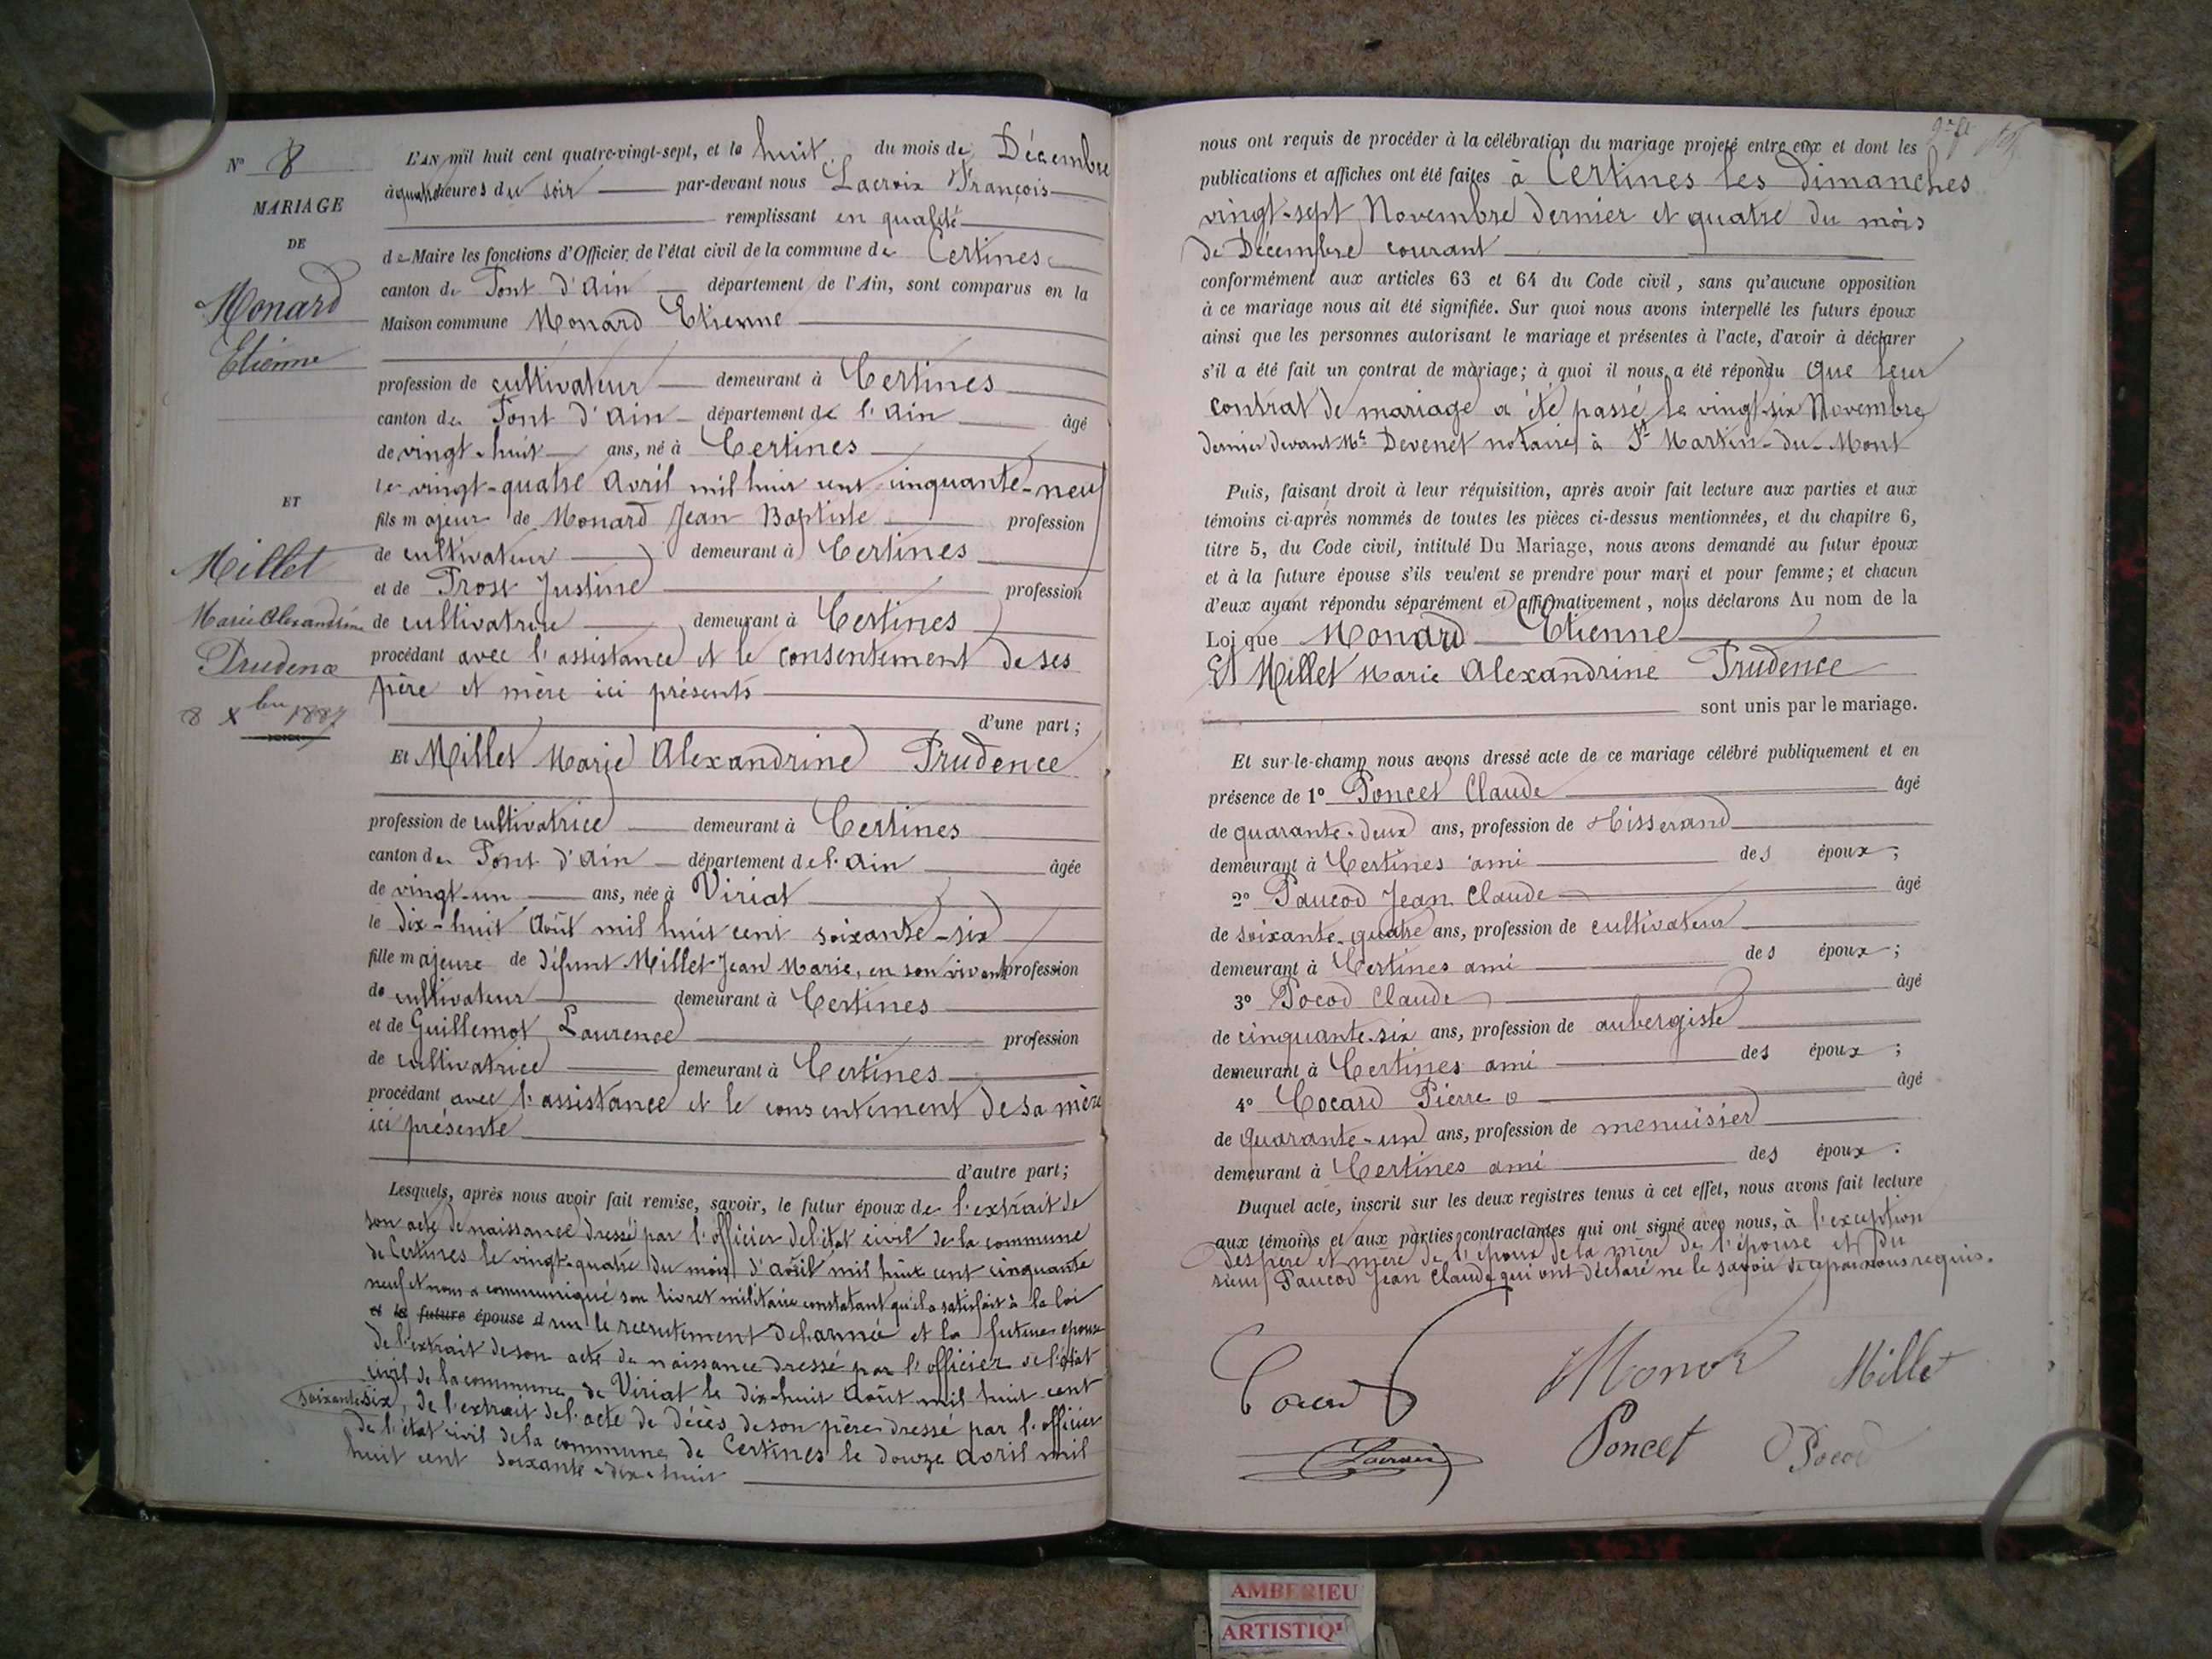 N° 8
MARIAGE
DE
Monard
Etienne
ET
Millet
Marie Alexandrine
Prudence
8 Xbre 1887
L'AN mil huit cent quatre-vingt-sept, et le huit du mois de Décembre
à quatre heures du soir par-devant nous Lacroix François
remplissant en qualité
de Maire les fonctions d'Officier de l'état civil de la commune de Certines
canton de Pont d'Ain département de l'Ain, sont comparus en la
Maison commune Monard Etienne
profession de cultivateur demeurant à Certines
canton de Pont d'Ain département de l'Ain âgé
de vingt-huit ans, né à Certines
le vingt-quatre Avril mil huit cent cinquante-neuf
fils majeur de Monard Jean Baptiste profession
de cultivateur demeurant à Certines
et de Prost Justine profession
de cultivatrice demeurant à Certines
procédant avec l'assistance et le consentement de ses
père et mère ici présents
d'une part;
Et Millet Marie Alexandrine Prudence
profession de cultivatrice demeurant à Certines
canton de Pont d'Ain département de l'Ain âgée
de vingt-un ans, née à Viriat
le dix-huit Août mil huit cent soixante-six
fille majeure de défunt Millet Jean Marie, en son vivant profession
de cultivateur demeurant à Certines
et de Guillemot Laurence profession
de cultivatrice demeurant à Certines
procédant avec l'assistance et le consentement de sa mère
ici présente
d'autre part;
Lesquels, après nous avoir fait remise, savoir, le futur époux de l'extrait de
son acte de naissance dressé par l'officier de l'état civil de la commune
de Certines le vingt-quatre du mois d'avril mil huit cent cinquante
neuf et nous a communiqué son livret militaire constatant qu'il a satisfait à la loi
et la future épouse d sur le recrutement de l'armée et la future épouse
de l'extrait de son acte de naissance dressé par l'officier de l'état
civil de la commune de Viriat le dix-huit Août mil huit cent
soixante six, de l'extrait de l'acte de décès de son père dressé par l'officier
de l'état civil de la commune de Certines le douze Avril mil
huit cent soixante-dix-huit
nous ont requis de procéder à la célébration du mariage projeté entre eux et dont les
publications et affiches ont été faites à Certines les dimanches
vingt-sept Novembre dernier et quatre du mois
de Décembre courant
conformément aux articles 63 et 64 du Code civil, sans qu'aucune opposition
à ce mariage nous ait été signifiée. Sur quoi nous avons interpellé les futurs époux
ainsi que les personnes autorisant le mariage et présentes à l'acte, d'avoir à déclarer
s'il a été fait un contrat de mariage; à quoi il nous a été répondu que leur
contrat de mariage a été passé le vingt-six Novembre
dernier devant Me Devenet notaire à St Martin-du-Mont
Puis, faisant droit à leur réquisition, après avoir fait lecture aux parties et aux
témoins ci-après nommés de toutes les pièces ci-dessus mentionnées, et du chapitre 6,
titre 5, du Code civil, intitulé Du Mariage, nous avons demandé au futur époux
et à la future épouse s'ils veulent se prendre pour mari et pour femme; et chacun
d'eux ayant répondu séparément et affirmativement, nous déclarons Au nom de la
Loi que Monard Etienne
Et Millet Marie Alexandrine Prudence
sont unis par le mariage.
Et sur-le-champ nous avons dressé acte de ce mariage célébré publiquement et en
présence de 1° Poncet Claude âgé
de quarante-deux ans, profession de tisserand
demeurant à Certines ami des époux;
2° Paucod Jean Claude âgé
de soixante-quatre ans, profession de cultivateur
demeurant à Certines ami des époux;
3° Pocod Claude âgé
de cinquante-six ans, profession de aubergiste
demeurant à Certines ami des époux;
4° Cocard Pierre âgé
de quarante-un ans, profession de menuisier
demeurant à Certines ami des époux.
Duquel acte, inscrit sur les deux registres tenus à cet effet, nous avons fait lecture
aux témoins et aux parties contractantes qui ont signé avec nous, à l'exception
des père et mère de l'époux de la mère de l'épouse et du
sieur Paucod Jean Claude qui ont déclaré ne le savoir de ce par nous requis.
Monard Millet
Poncet Pocod
Lacroix
AMBERIEU
ARTISTIQ'